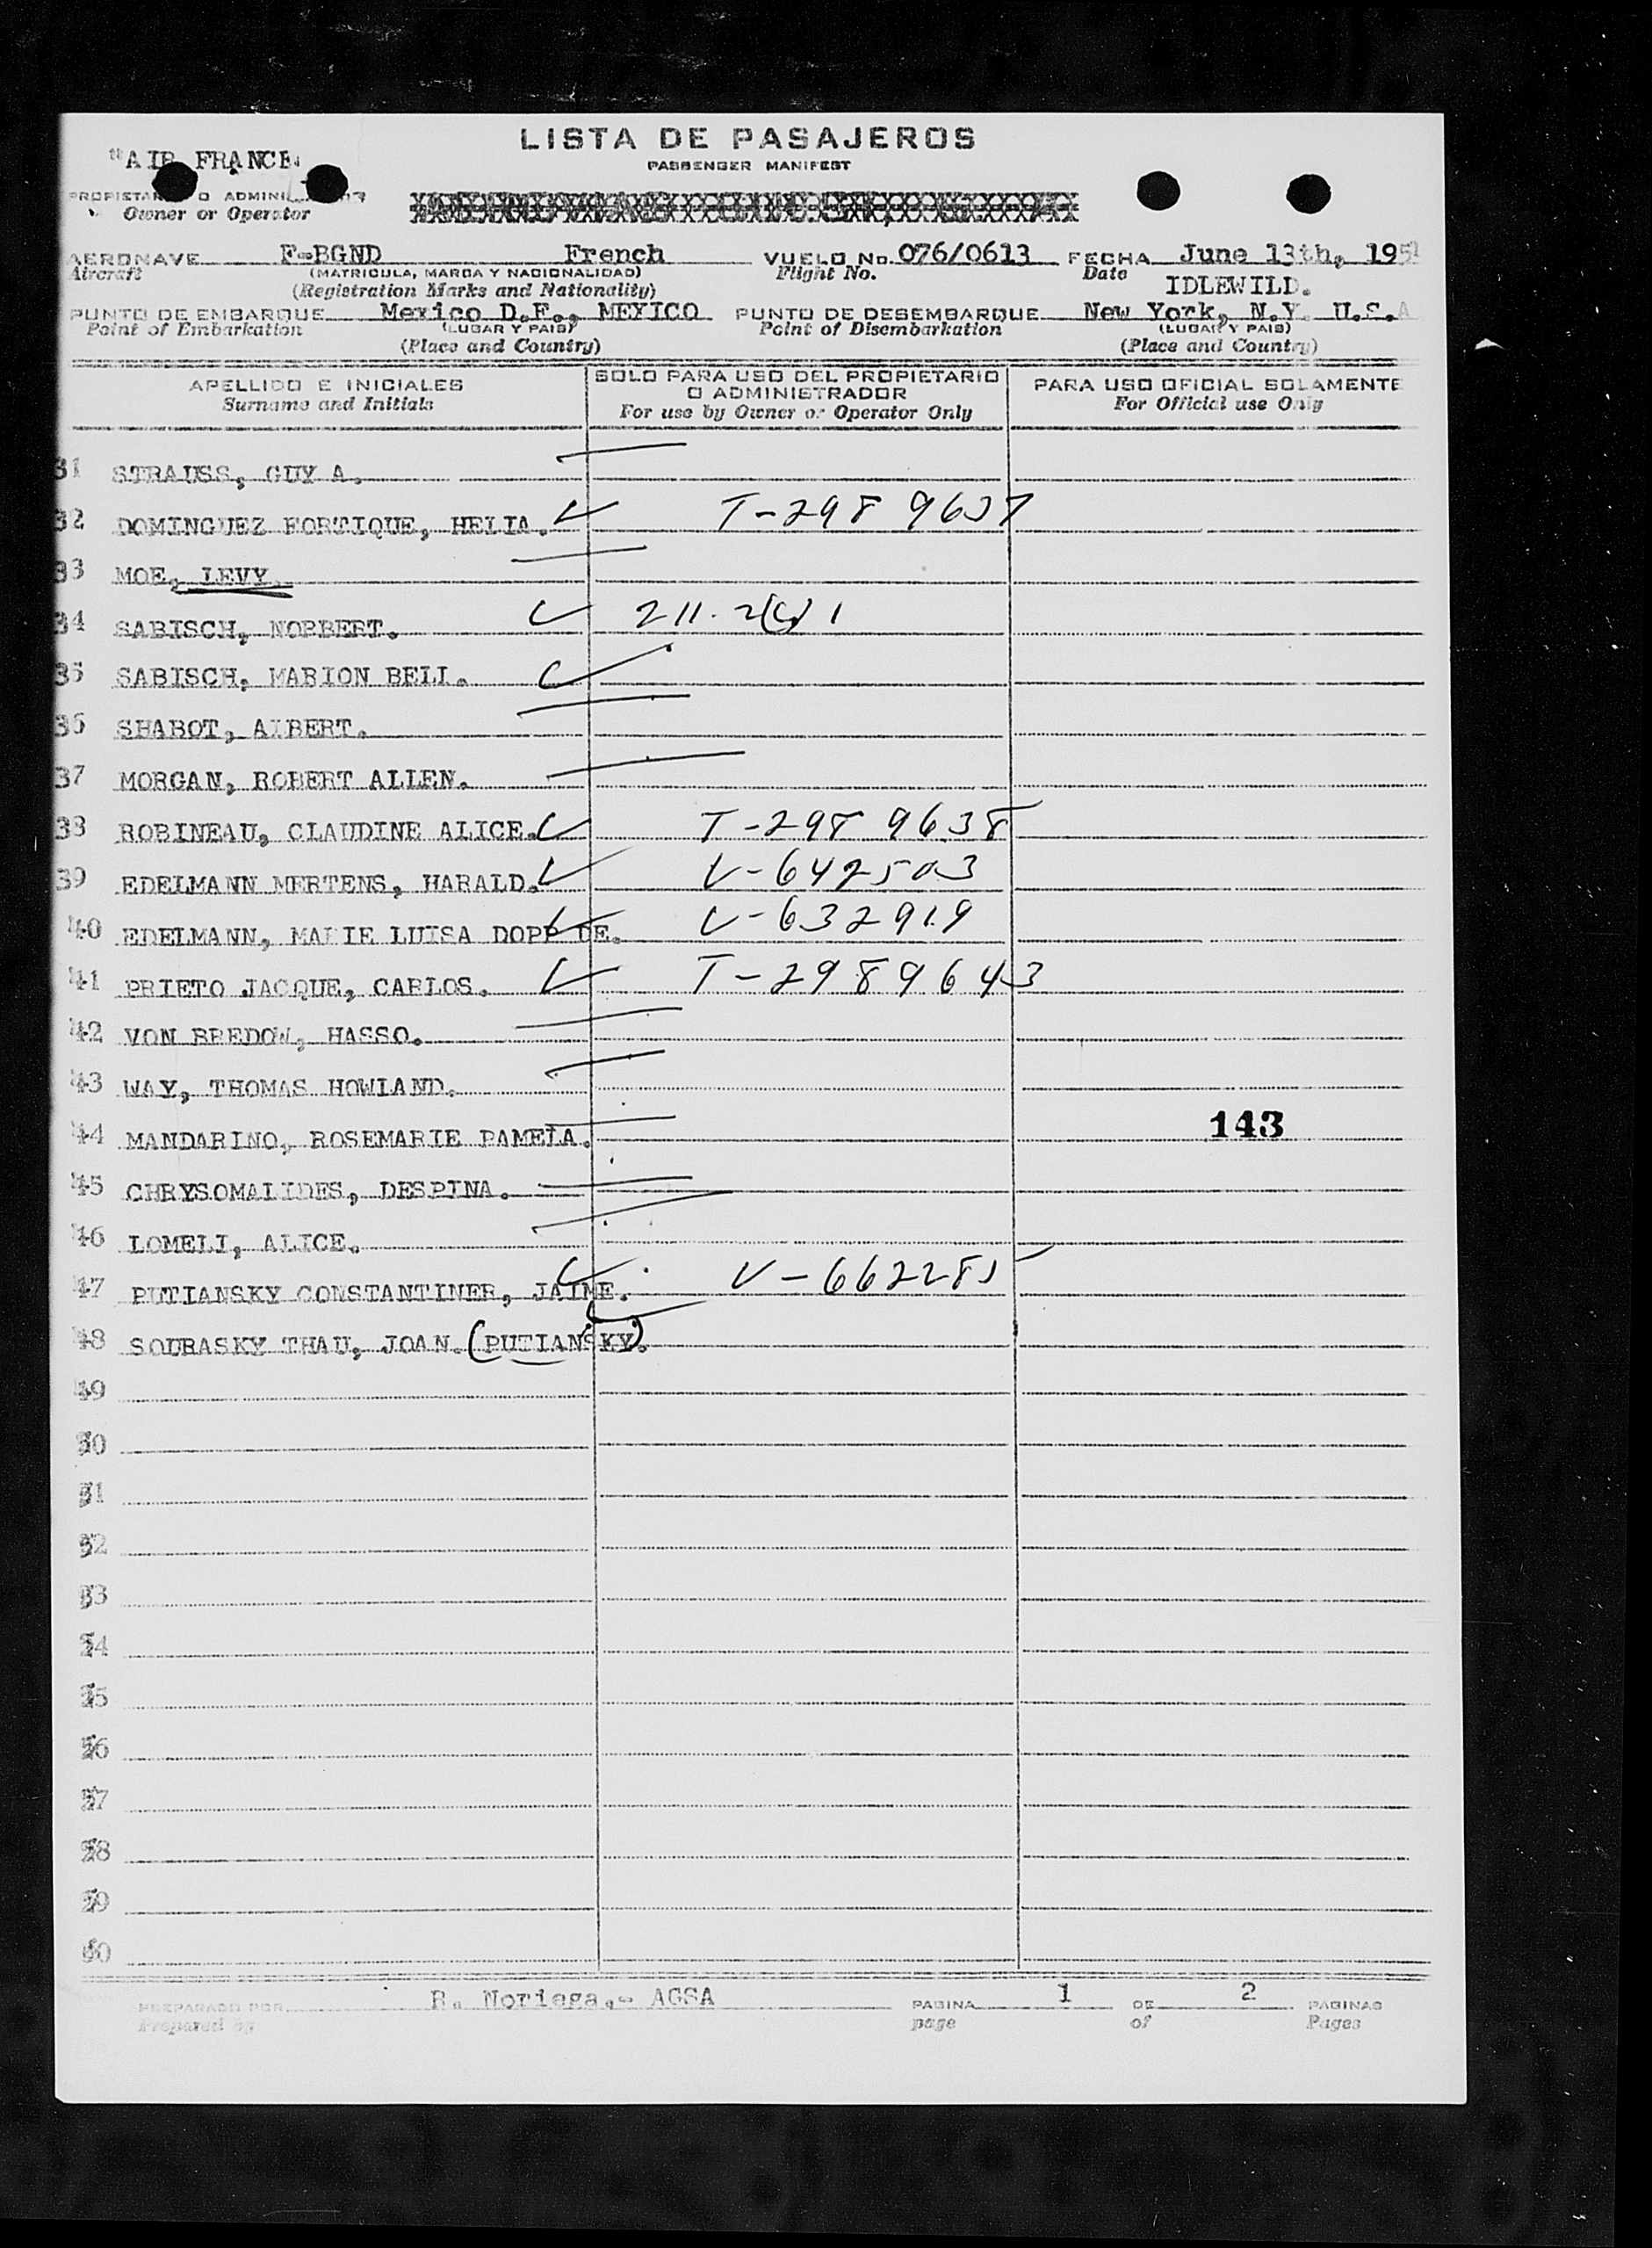 LISTA DE PASAJEROS
PASSENGER MANIFEST
"AIR FRANCE
PROPIETARIO O ADMINISTRADOR
Owner or Operator
AERONAVE F-BGND French VUELO No. 076/0613 FECHA June 13th, 195
Aircraft (MATRICULA, MARCA Y NACIONALIDAD) Flight No. Date
(Registration Marks and Nationality) IDLEWILD.
PUNTO DE EMBARQUE Mexico D.F., MEXICO PUNTO DE DESEMBARQUE New York, N.Y. U.S.A
Point of Embarkation (LUGAR Y PAIS) Point of Disembarkation (LUGAR Y PAIS)
(Place and Country) (Place and Country)
APELLIDO E INICIALES SOLO PARA USO DEL PROPIETARIO O ADMINISTRADOR PARA USO OFICIAL SOLAMENTE
Surname and Initials For use by Owner or Operator Only For Official use Only
31 STRAUSS, GUY A.
32 DOMINGUEZ FORTIQUE, HELIA. T-298 9637
33 MOE, LEVY.
34 SABISCH, NORBERT. 211.2(c)1
35 SABISCH, MARION BELL.
36 SHABOT, ALBERT.
37 MORGAN, ROBERT ALLEN.
38 ROBINEAU, CLAUDINE ALICE. T-298 9638
39 EDELMANN MERTENS, HARALD. V-642503
40 EDELMANN, MARIE LUISA DOPP DE. V-632919
41 PRIETO JACQUE, CARLOS. T-2989643
42 VON BREDOW, HASSO.
43 WAY, THOMAS HOWLAND.
44 MANDARINO, ROSEMARIE PAMELA. 143
45 CHRYSOMALIDES, DESPINA.
46 LOMELI, ALICE.
47 PUTIANSKY CONSTANTINER, JAIME. V-662285
48 SOURASKY THAU, JOAN. (PUTIANSKY).
49
50
51
52
53
54
55
56
57
58
59
60
PREPARADO POR R. Noriega.- AGSA PAGINA 1 DE 2 PAGINAS
Prepared by page of Pages